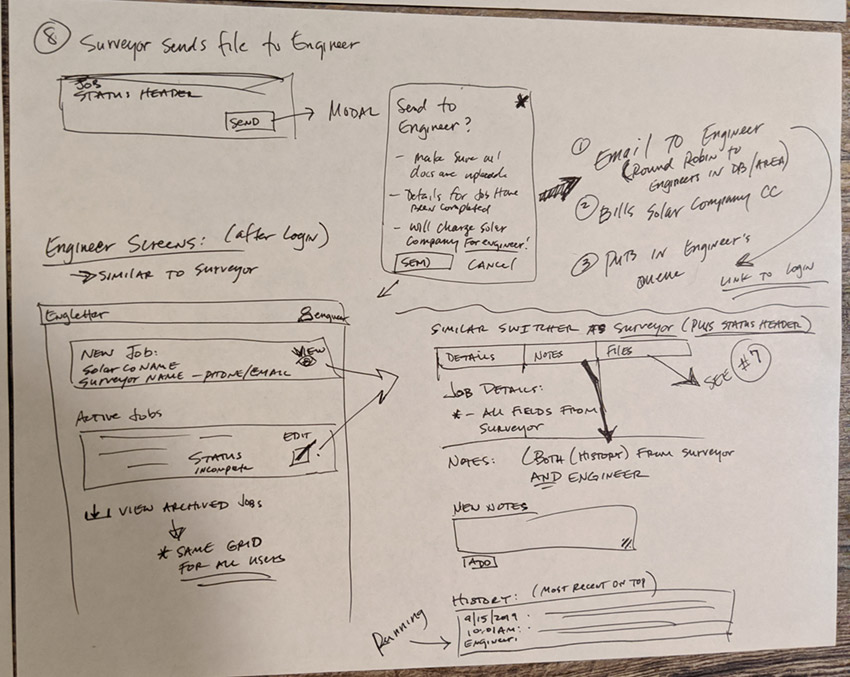 8 Surveyor sends file to Engineer
JOB
STATUS HEADER
SEND
MODAL
Send to
Engineer?
- make sure all
docs are uploaded
- Details for Job Have
Been completed
- will charge Solar
Company For engineer!
SEND CANCEL
1 EMAIL TO Engineer
(Round Robin to
Engineers in DB/AREA)
2 Bills Solar Company CC
3 Puts in Engineer's
queue
LINK TO LOGIN
Engineer Screens: (after Login)
SIMILAR TO SURVEYOR
Engletter engineer
NEW JOB: VIEW
Solar CO NAME
SURVEYOR NAME - PHONE/EMAIL
ACTIVE JOBS
EDIT
STATUS
INCOMPLETE
VIEW ARCHIVED JOBS
* SAME GRID
FOR ALL USERS
SIMILAR SWITCHER AS SURVEYOR (PLUS STATUS HEADER)
DETAILS NOTES FILES
SEE #7
JOB DETAILS:
* - ALL FIELDS FROM
SURVEYOR
NOTES: (BOTH (HISTORY) FROM SURVEYOR
AND ENGINEER
NEW NOTES
ADD
HISTORY: (MOST RECENT ON TOP)
Running
9/15/2019
10:01AM:
Engineer: